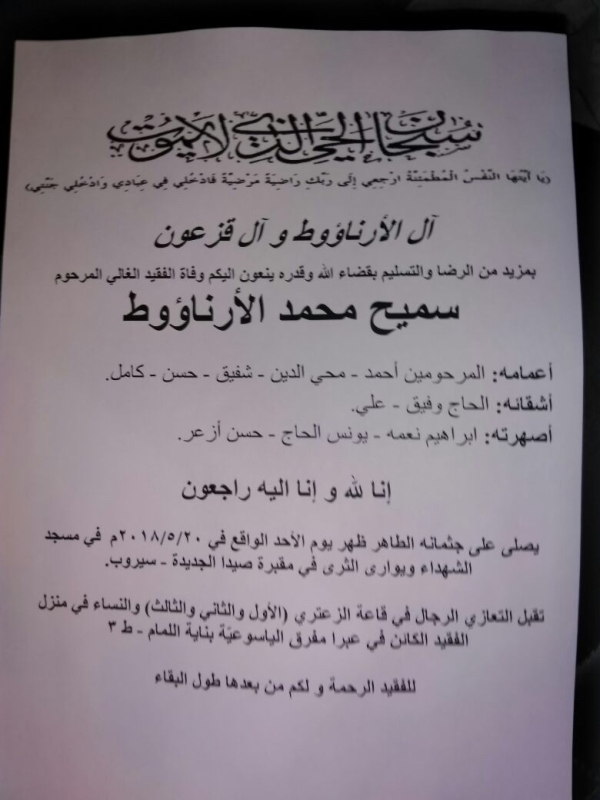 سبحان الحي الذي لا يموت
(يَا أَيَّتُهَا النَّفْسُ الْمُطْمَئِنَّةُ ارْجِعِي إِلَى رَبِّكِ رَاضِيَةً مَرْضِيَّةً فَادْخُلِي فِي عِبَادِي وَادْخُلِي جَنَّتِي)
آل الأرناؤوط و آل قزعون
بمزيد من الرضا والتسليم بقضاء الله وقدره ينعون اليكم وفاة الفقيد الغالي المرحوم
سميح محمد الأرناؤوط
أعمامه: المرحومين أحمد - محي الدين - شفيق - حسن - كامل.
أشقائه: الحاج وفيق - علي.
أصهرته: ابراهيم نعمه - يونس الحاج - حسن أزعر.
إنا لله و إنا اليه راجعون
يصلى على جثمانه الطاهر ظهر يوم الأحد الواقع في ٢٠١٨/٥/٢٠م في مسجد
الشهداء ويوارى الثرى في مقبرة صيدا الجديدة - سيروب.
تقبل التعازي الرجال في قاعة الزعتري (الأول والثاني والثالث) والنساء في منزل
الفقيد الكائن في عبرا مفرق الياسوعيّة بناية اللمام - ط ٣
للفقيد الرحمة و لكم من بعدها طول البقاء